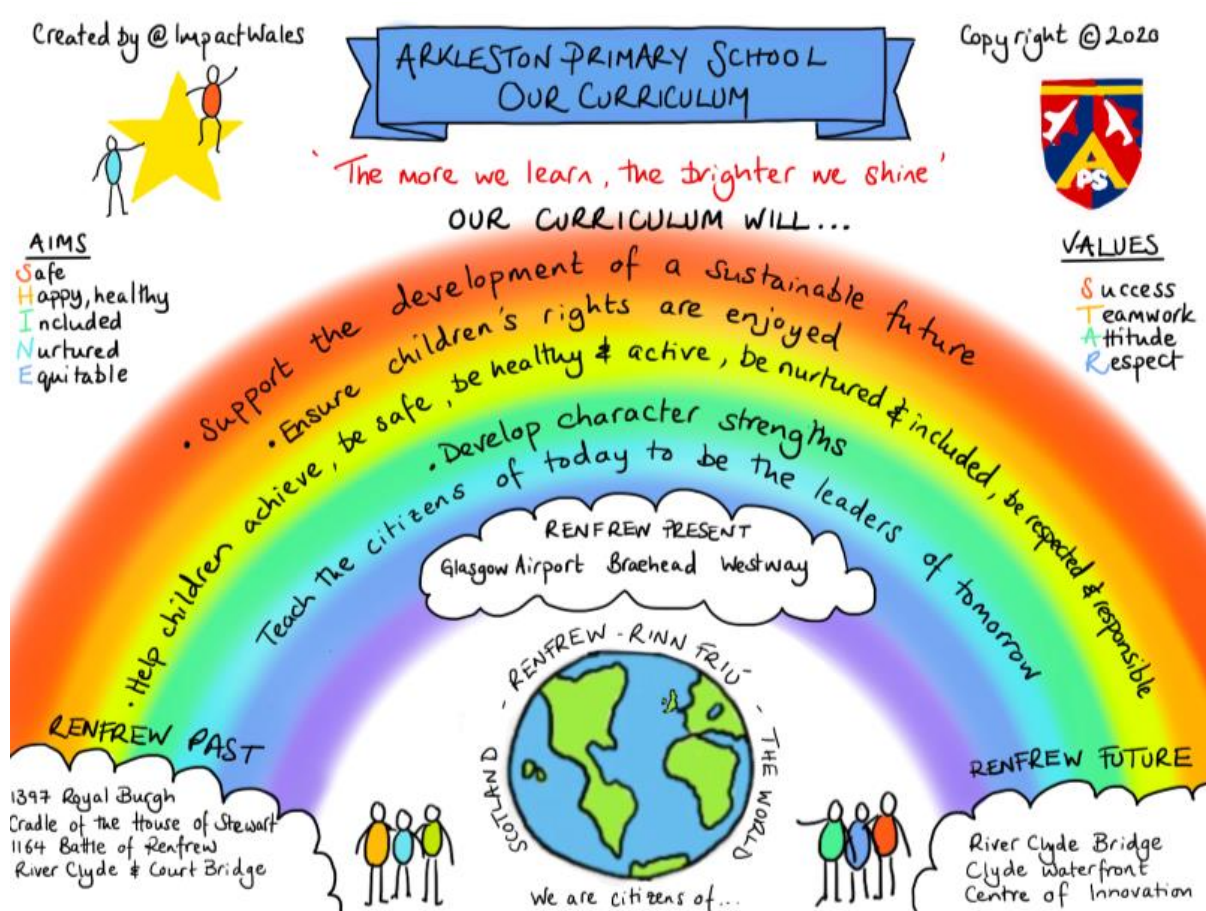 Created by @ImpactWales
ARKLESTON PRIMARY SCHOOL
OUR CURRICULUM
Copyright © 2020
'The more we learn, the brighter we shine'
OUR CURRICULUM WILL...
APS
AIMS
Safe
Happy, healthy
Included
Nurtured
Equitable
VALUES
Success
Teamwork
Attitude
Respect
• Support the development of a sustainable future
• Ensure children's rights are enjoyed
• Help children achieve, be safe, be healthy & active, be nurtured & included, be respected & responsible
• Develop character strengths
Teach the citizens of today to be the leaders of tomorrow
RENFREW PRESENT
Glasgow Airport Braehead Westway
RENFREW PAST
1397 Royal Burgh
Cradle of the House of Stewart
1164 Battle of Renfrew
River Clyde & Court Bridge
SCOTLAND - RENFREW - RINN FRIÚ - THE WORLD
We are citizens of...
RENFREW FUTURE
River Clyde Bridge
Clyde Waterfront
Centre of Innovation